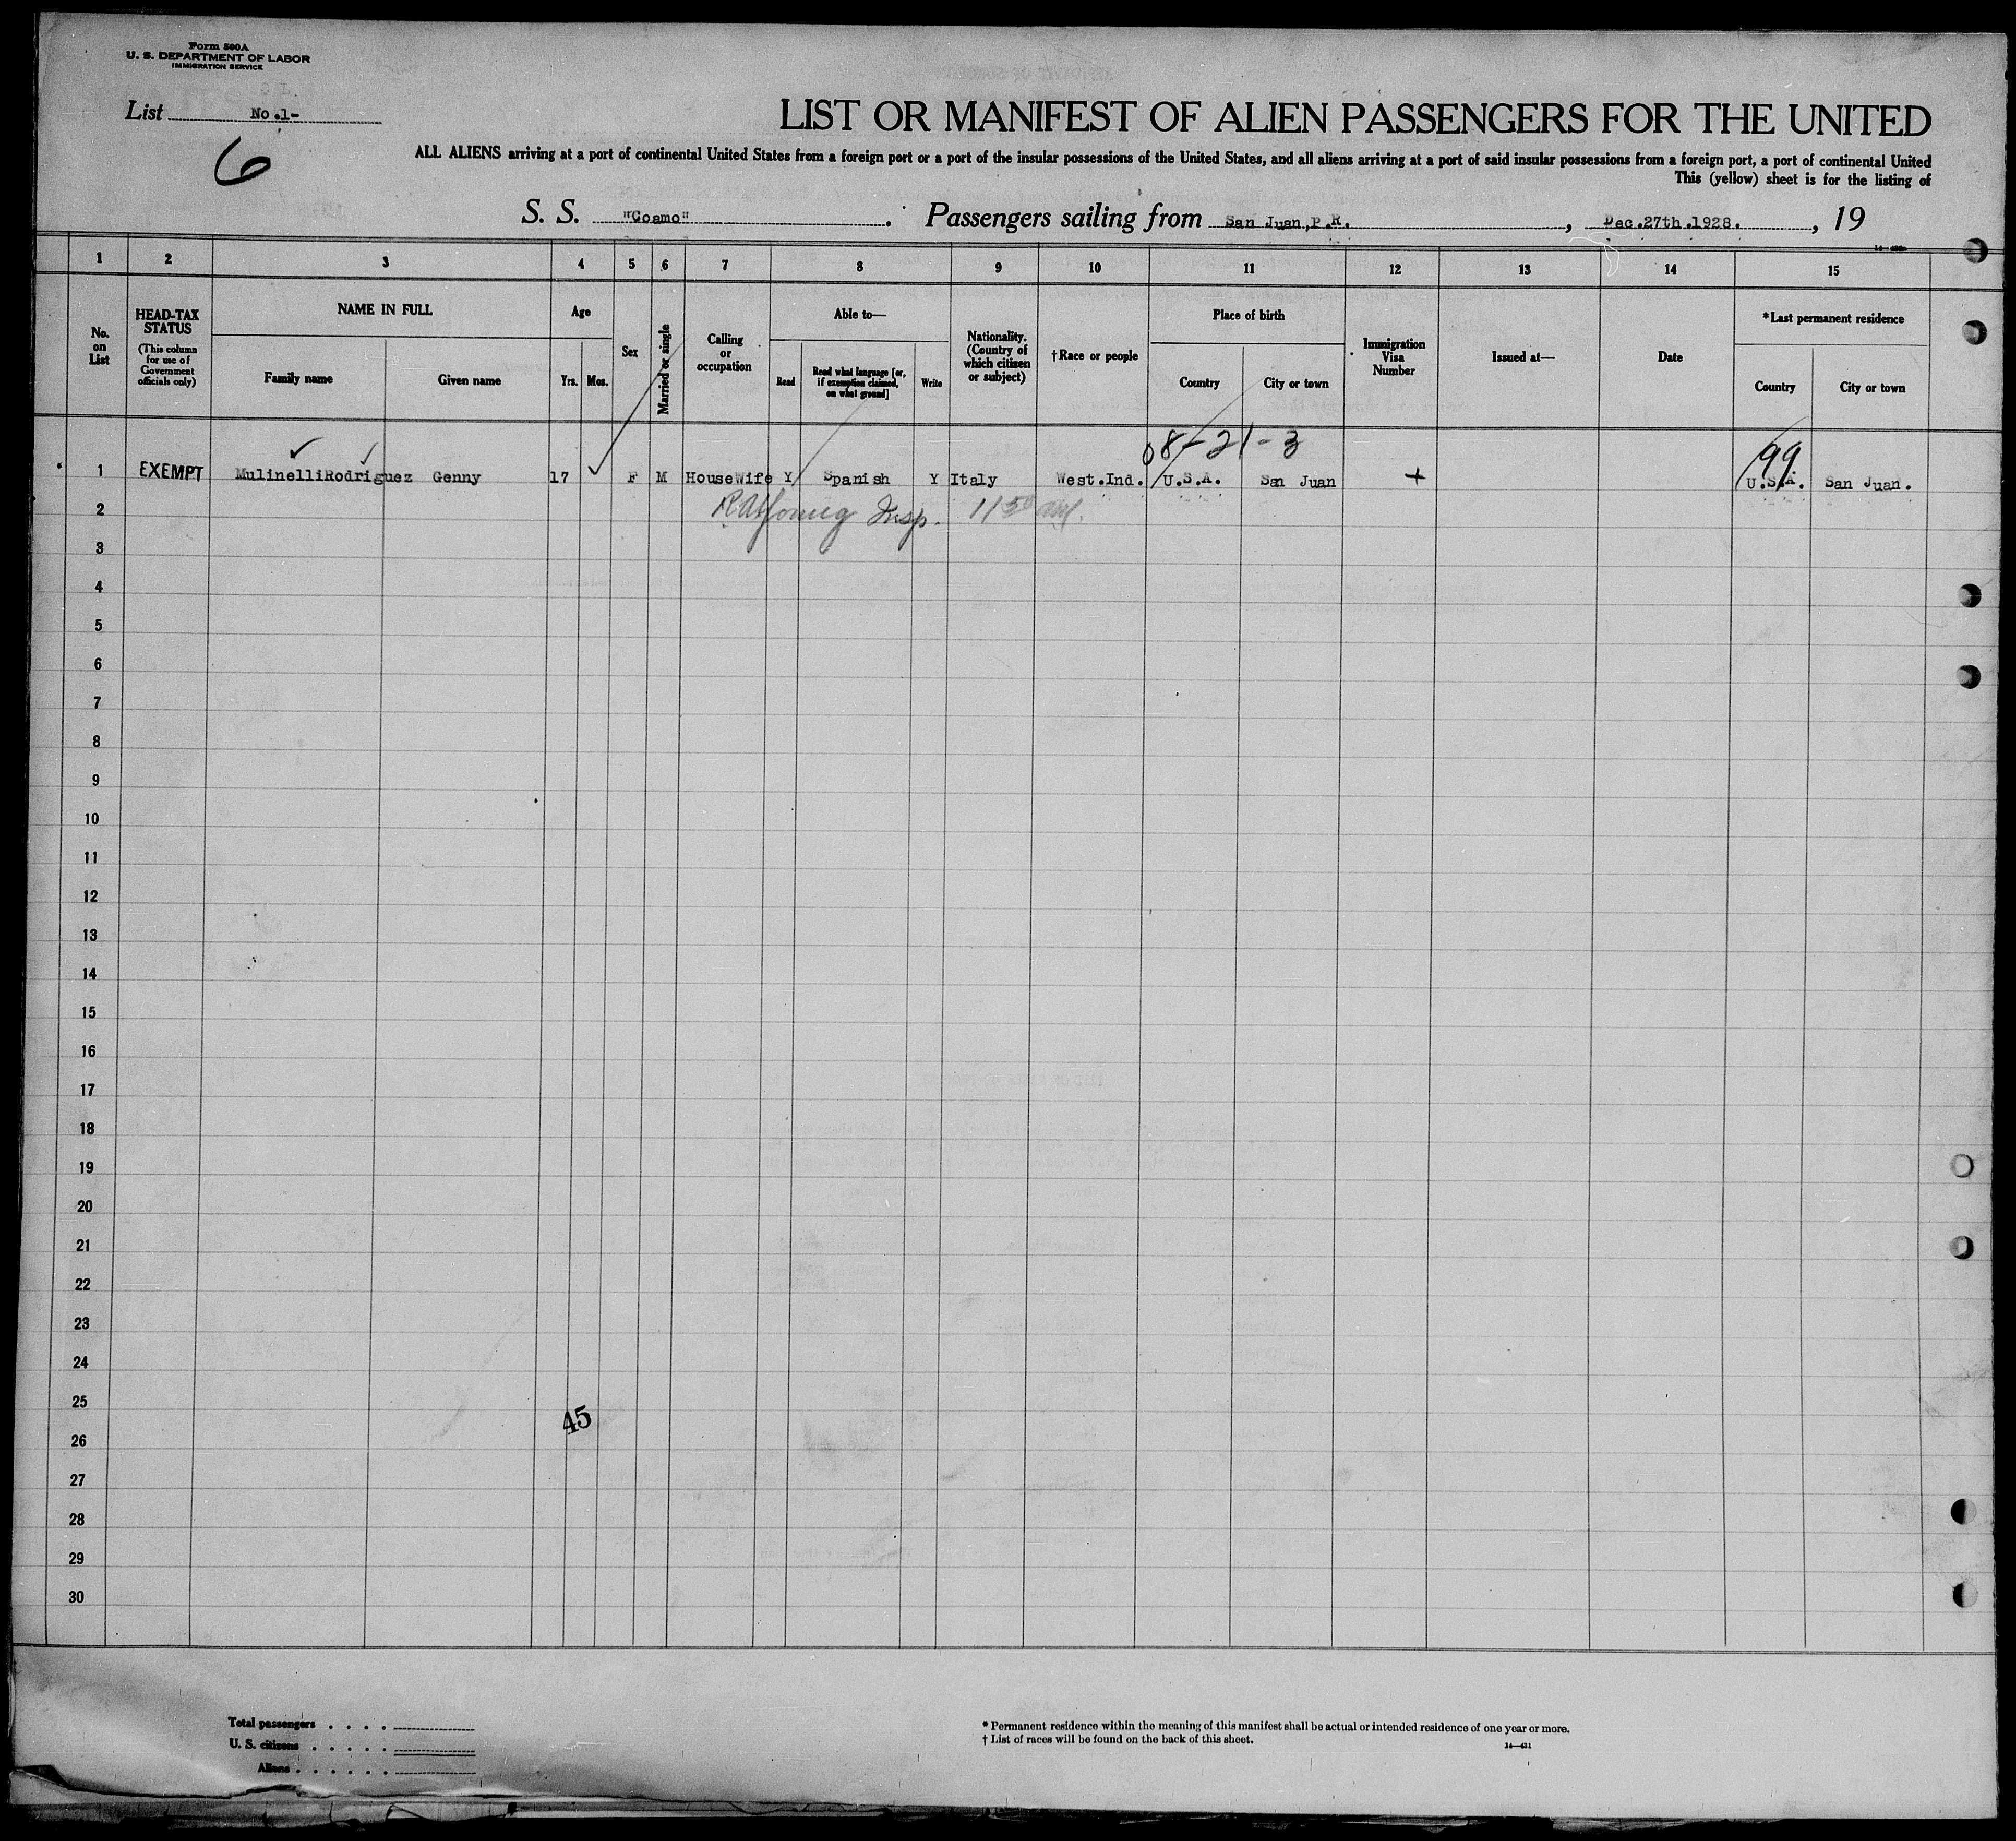 Form 500A
U. S. DEPARTMENT OF LABOR
IMMIGRATION SERVICE
List No.1-
6
LIST OR MANIFEST OF ALIEN PASSENGERS FOR THE UNITED
ALL ALIENS arriving at a port of continental United States from a foreign port or a port of the insular possessions of the United States, and all aliens arriving at a port of said insular possessions from a foreign port, a port of continental United
This (yellow) sheet is for the listing of
S. S. "Coamo" . Passengers sailing from San Juan,P.R. , Dec.27th.1928. , 19
1 2 3 4 5 6 7 8 9 10 11 12 13 14 15
No. on List
HEAD-TAX STATUS
(This column for use of Government officials only)
NAME IN FULL
Family name Given name
Age
Yrs. Mos.
Sex
Married or single
Calling or occupation
Able to—
Read
Read what language [or, if exemption claimed, on what ground]
Write
Nationality. (Country of which citizen or subject)
†Race or people
Place of birth
Country City or town
Immigration Visa Number
Issued at—
Date
*Last permanent residence
Country City or town
08-21-3
99
1 EXEMPT MulinelliRodriguez Genny 17 F M HouseWife Y Spanish Y Italy West.Ind. U.S.A. San Juan + U.S.A. San Juan.
2 Insp. 11
3
4
5
6
7
8
9
10
11
12
13
14
15
16
17
18
19
20
21
22
23
24
25
45
26
27
28
29
30
Total passengers . . . .
U. S. citizens . . . . .
Aliens . . . . . .
* Permanent residence within the meaning of this manifest shall be actual or intended residence of one year or more.
† List of races will be found on the back of this sheet.
14—431